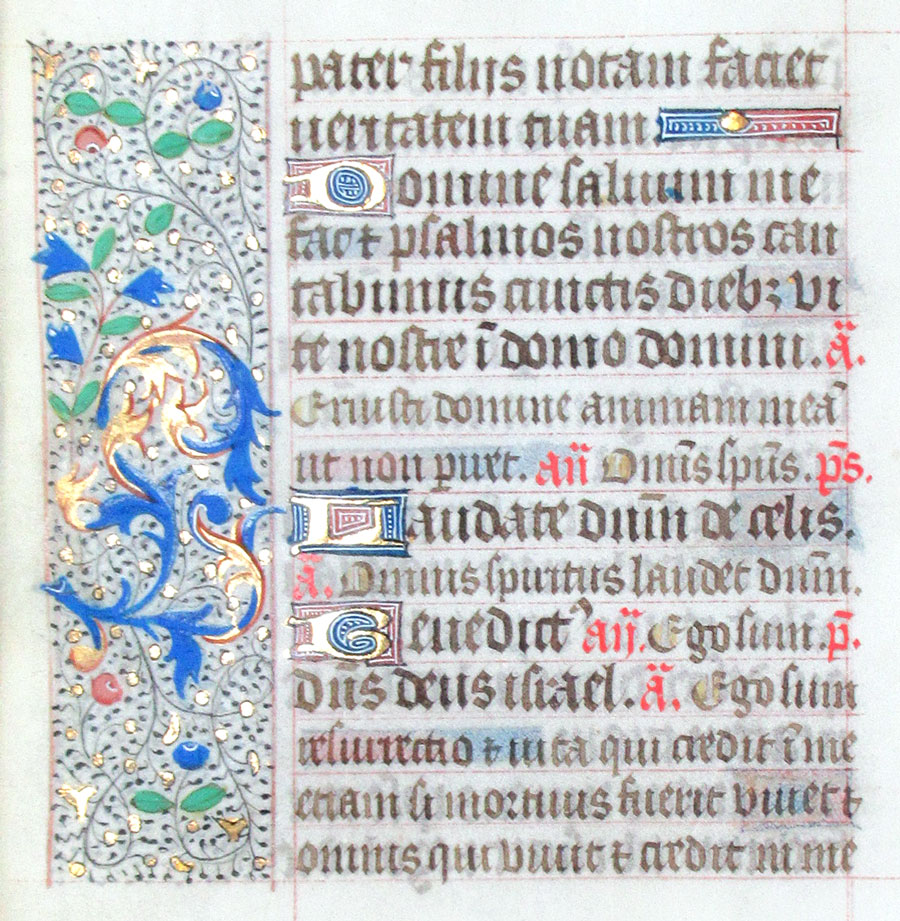 pater filijs notam faciet
veritatem tuam
Domine salvum me
fac ⁊ psalmos nostros can
tabimus cunctis dieb⁊ vi
te nostre ī domo domini. ā.
Eruisti domine animam meā
ut non piret. añ Omīs spūs. ps̄.
Laudate dnīm de celis.
ā. Omnis spiritus laudet dnīm.
Benedictꝰ añ. Ego sum. p̄.
Dns deus israel. ā. Ego sum
resurrectio ⁊ vita qui credit ī me
etiam si mortuus fuerit vivet ⁊
omnis qui vivit ⁊ credit in me